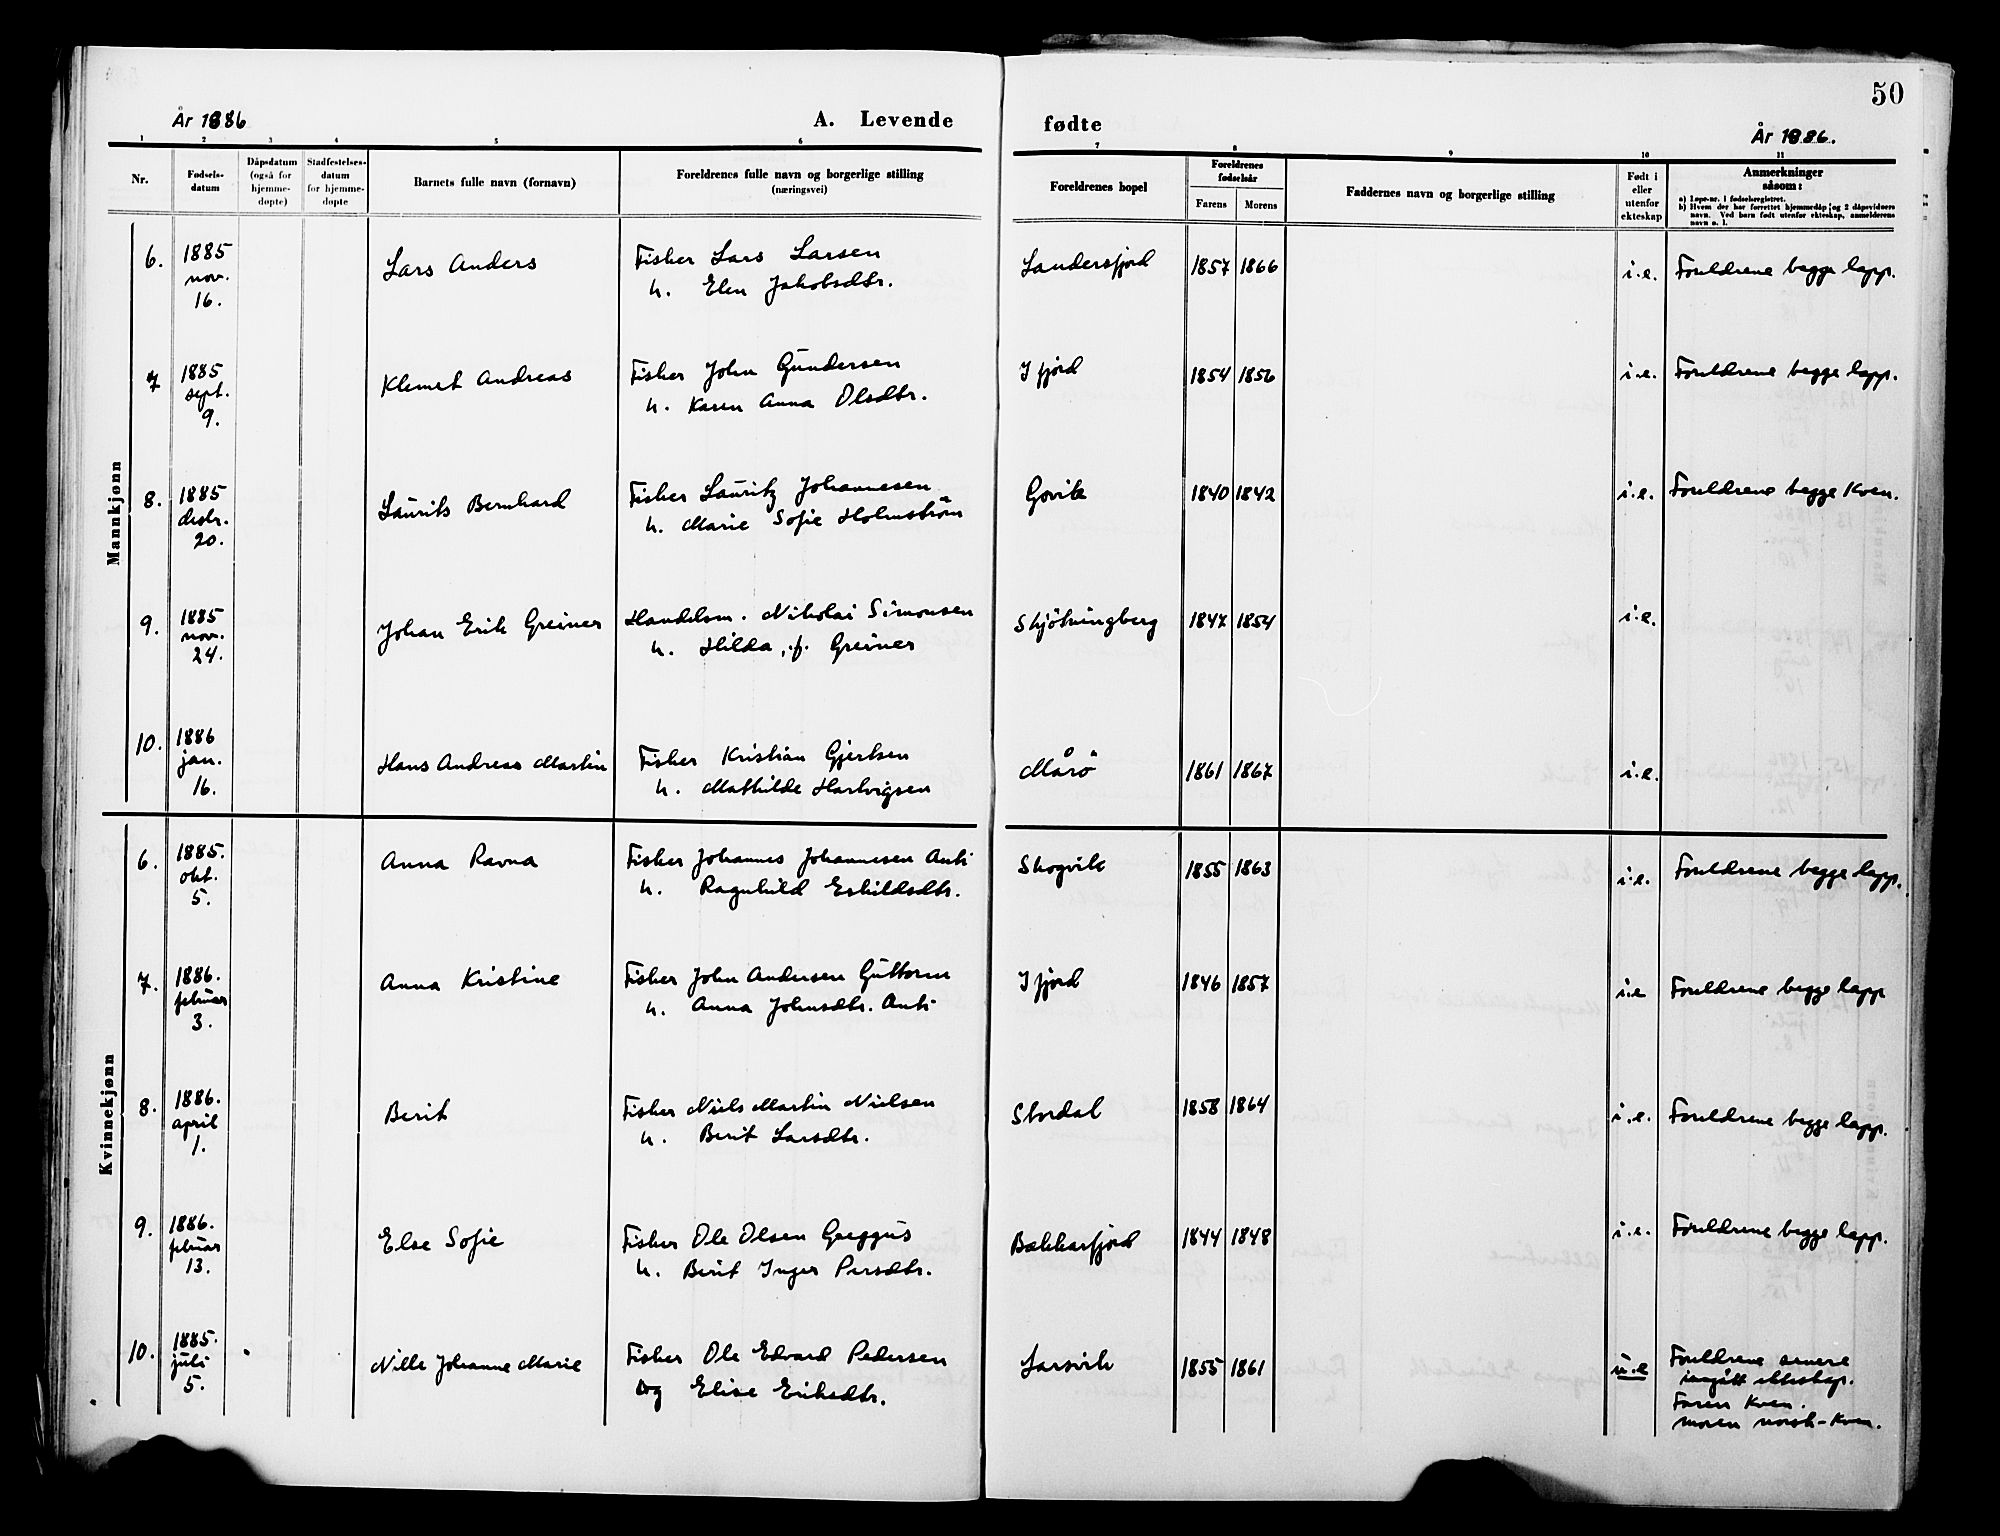 50
År 1886
A. Levende
fødte
År 1886.
1 2 3 4 5 6 7 8 9 10 11
Nr.
Fødsels-
datum
Dåpsdatum
(også for
hjemme-
døpte)
Stadfestelses-
datum
for hjemme-
døpte
Barnets fulle navn (fornavn)
Foreldrenes fulle navn og borgerlige stilling
(næringsvei)
Foreldrenes bopel
Foreldrenes
fødselsår
Farens
Morens
Faddernes navn og borgerlige stilling
Født i
eller
utenfor
ekteskap
Anmerkninger
såsom:
a) Løpe-nr. i fødselsregistret.
b) Hvem der har forrettet hjemmedåp og 2 dåpsvidners
navn. Ved barn født utenfor ekteskap, anmelderens
navn o. l.
Mannkjønn
6. 1885 Lars Anders Fisker Lars Larsen Landersfjord 1857 1866 i.e. Foreldrene begge lapp.
nov. h. Elen Jakobsdtr.
16.
7 1885 Klemet Andreas Fisker John Gundersen Ifjord 1854 1856 i.e. Foreldrene begge lapp.
sept. h. Karen Anna Olsdtr.
9.
8. 1885 Laurits Bernhard Fisker Lauritz Johannesen Govik 1840 1842 i.e. Foreldrene begge Kven.
desbr. h. Marie Sofie Holmström
20.
9. 1885 Johan Erik Greiner Handelsm. Nikolai Simonsen Skjötningberg 1847 1854 i.e.
nov. h. Hilda, f. Greiner
24.
10. 1886 Hans Andreas Martin Fisker Kristian Gjertsen Mårö 1861 1867 i.e.
jan. h. Mathilde Hartvigsen
16.
Kvinnekjønn
6. 1885. Anna Ravna Fisker Johannes Johannesen Anti Skogvik 1855 1863 i.e. Foreldrene begge lapp.
okt. h. Ragnhild Eskildsdtr.
5.
7. 1886. Anna Kristine Fisker John Andersen Guttorm Ifjord 1846 1857 i.e Foreldrene begge lapp
februar h. Anna Johnsdtr. Anti
3.
8. 1886. Berit Fisker Niels Martin Nielsen Stordal 1858 1864 i.e. Foreldrene begge lapp.
april h. Berit Larsdtr.
1.
9. 1886. Else Sofie Fisker Ole Olsen Greggus Bekkarfjord 1844 1848 i.e. Foreldrene begge lapp.
februar h. Berit Inger Persdtr.
13.
10. 1885. Nille Johanne Marie Fisker Ole Edvard Pedersen Larsvik 1855 1861 u.e Foreldrene senere
juli og Elise Eriksdtr. inngått ekteskap.
5. Faren Kven.
moren norsk-Kven.